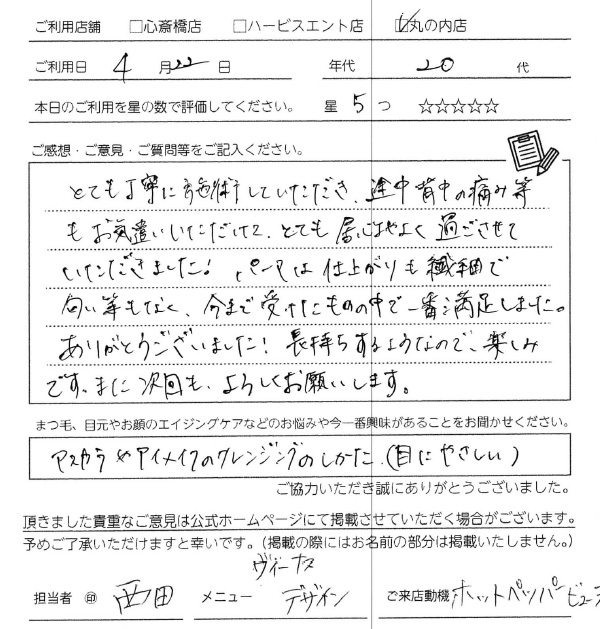 ご利用店舗 □心斎橋店 □ハービスエント店 ☑丸の内店
ご利用日 4 月 22 日 年代 20 代
本日のご利用を星の数で評価してください。 星 5 つ ☆☆☆☆☆
ご感想・ご意見・ご質問等をご記入ください。
とても丁寧に施術していただき、途中背中の痛み等
もお気遣いいただけて、とても居心地よく過ごさせて
いただきました! パーマは仕上がりも繊細で
匂い等もなく、今まで受けたものの中で一番満足しました。
ありがとうございました! 長持ちするようなので、楽しみ
です。また次回も、よろしくお願いします。
まつ毛、目元やお顔のエイジングケアなどのお悩みや今一番興味があることをお聞かせください。
マスカラやアイメイクのクレンジングのしかた。(目にやさしい)
ご協力いただき誠にありがとうございました。
頂きました貴重なご意見は公式ホームページにて掲載させていただく場合がございます。
予めご了承いただけますと幸いです。(掲載の際にはお名前の部分は掲載いたしません。)
担当者 ㊞ 西田 メニュー ヴィーナスデザイン ご来店動機 ホットペッパービュー